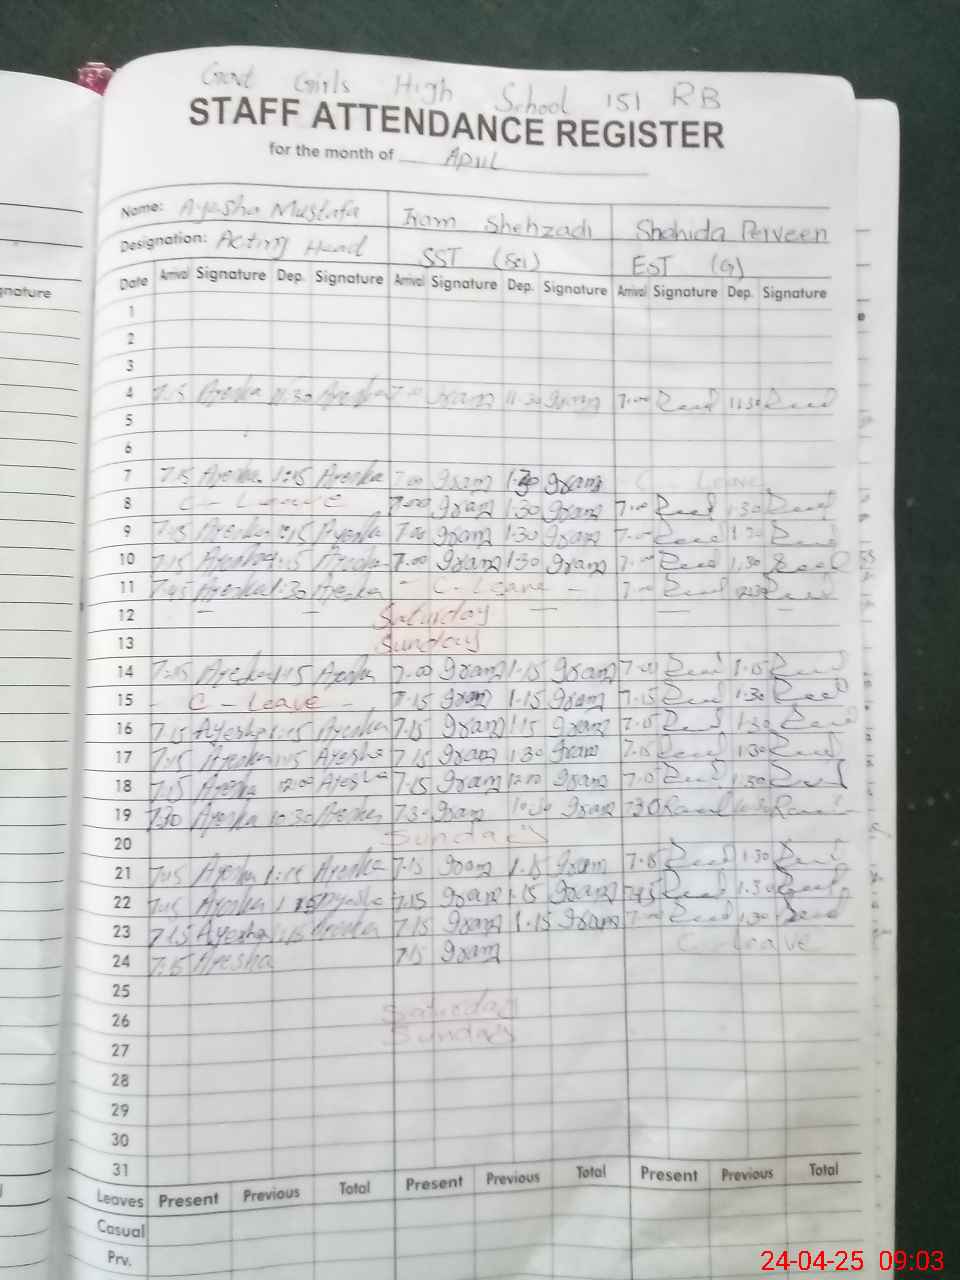 Govt Girls High School 151 RB
STAFF ATTENDANCE REGISTER
for the month of April
Name: Ayesha Mustafa Iram Shehzadi Shahida Perveen
Designation: Acting Head SST (Sci) EST (G)
Date Arrival Signature Dep. Signature Arrival Signature Dep. Signature Arrival Signature Dep. Signature
gnature
1
2
3
4 7.15 Ayesha 11.30 Ayesha 7.00 Iram 11.30 Iram 7.00 11.30
5
6
7 7.15 Ayesha 1.15 Ayesha 7.00 Iram 1.30 Iram C - Leave
8 C - Leave 7.00 Iram 1.30 Iram 7.00 1.30
9 Ayesha 1.15 Ayesha 7.00 Iram 1.30 Iram 7.00 1.30
10 7.15 Ayesha Ayesha 7.00 Iram 1.30 Iram 7.00 1.30
11 Ayesha 1.30 Ayesha - C - Leave - 7.00
12 Saturday
13 Sunday
14 7.15 Ayesha 1.15 Ayesha 7.00 Iram 1.15 Iram 7.00 1.15
15 - C - Leave - 7.15 Iram 1.15 Iram 7.15 1.30
16 7.15 Ayesha 1.15 Ayesha 7.15 Iram 1.15 Iram 1.30
17 Ayesha 1.15 Ayesha 7.15 Iram 1.30 Iram 7.15 1.30
18 7.15 Ayesha 12.00 Ayesha 7.15 Iram 12.00 Iram 1.30
19 7.30 Ayesha 10.30 Ayesha 7.30 Iram 10.30 Iram 7.30
20 Sunday
21 Ayesha 1.15 Ayesha 7.15 Iram 1.15 Iram 7.15 1.30
22 Ayesha Ayesha 7.15 Iram 1.15 Iram 1.30
23 7.15 Ayesha 1.15 Ayesha 7.15 Iram 1.15 Iram 7.00 1.30
24 7.15 Ayesha 7.15 Iram C - Leave
25
26 Saturday
27 Sunday
28
29
30
31
Leaves Present Previous Total Present Previous Total Present Previous Total
Casual
Prv.
24-04-25 09:03